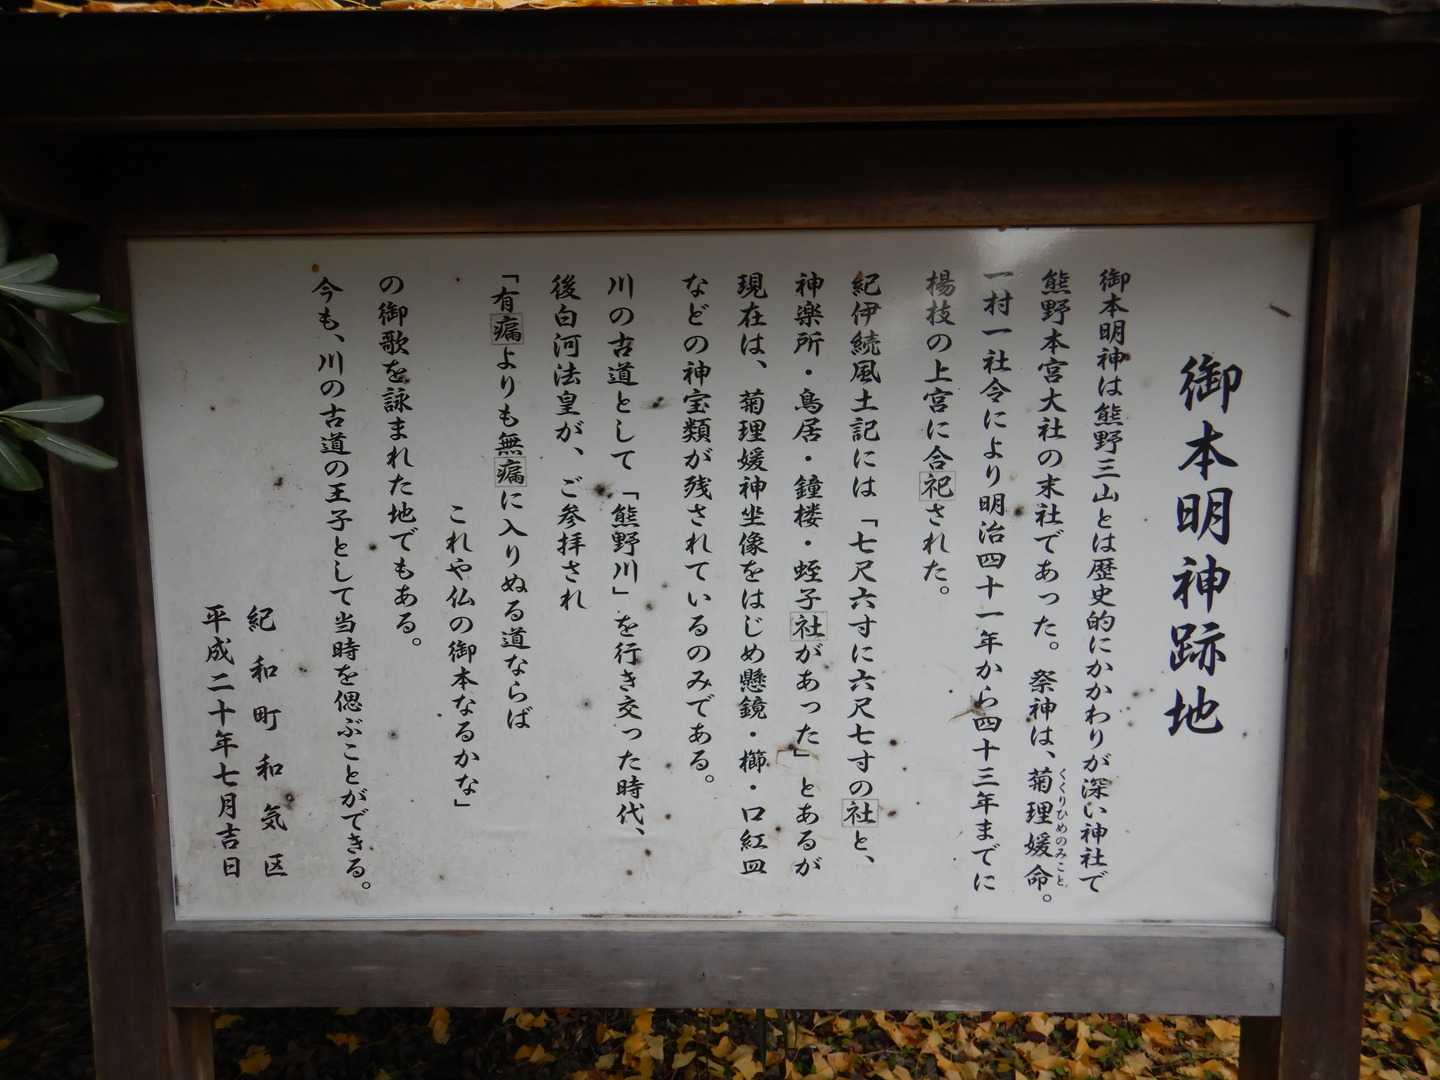 御本明神跡地
御本明神は熊野三山とは歴史的にかかわりが深い神社で
熊野本宮大社の末社であった。祭神は、菊理媛命。
くくりひめのみこと
一村一社令により明治四十一年から四十三年までに
楊枝の上宮に合祀された。
紀伊続風土記には「七尺六寸に六尺七寸の社と、
神楽所・鳥居・鐘楼・蛭子社があった」とあるが
現在は、菊理媛神坐像をはじめ懸鏡・櫛・口紅皿
などの神宝類が残されているのみである。
川の古道として「熊野川」を行き交った時代、
後白河法皇が、ご参拝され
「有漏よりも無漏に入りぬる道ならば
これや仏の御本なるかな」
の御歌を詠まれた地でもある。
今も、川の古道の王子として当時を偲ぶことができる。
紀和町和気区
平成二十年七月吉日